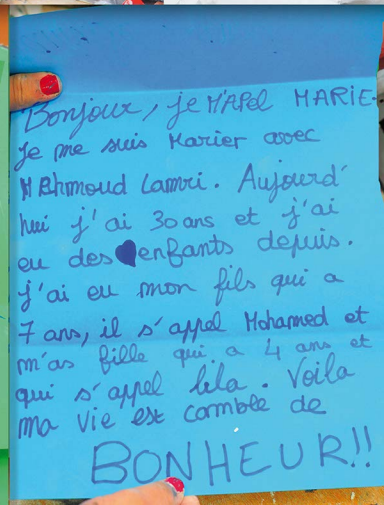 Bonjour, je M'APel MARIE.
Je me suis Marier avec
MAhmoud Lamri. Aujourd'
hui j'ai 30 ans et j'ai
eu des enfants depuis.
j'ai eu mon fils qui a
7 ans, il s'appel Mohamed et
m'as fille qui a 4 ans et
qui s'appel lila. Voila
ma vie est comble de
BONHEUR!!